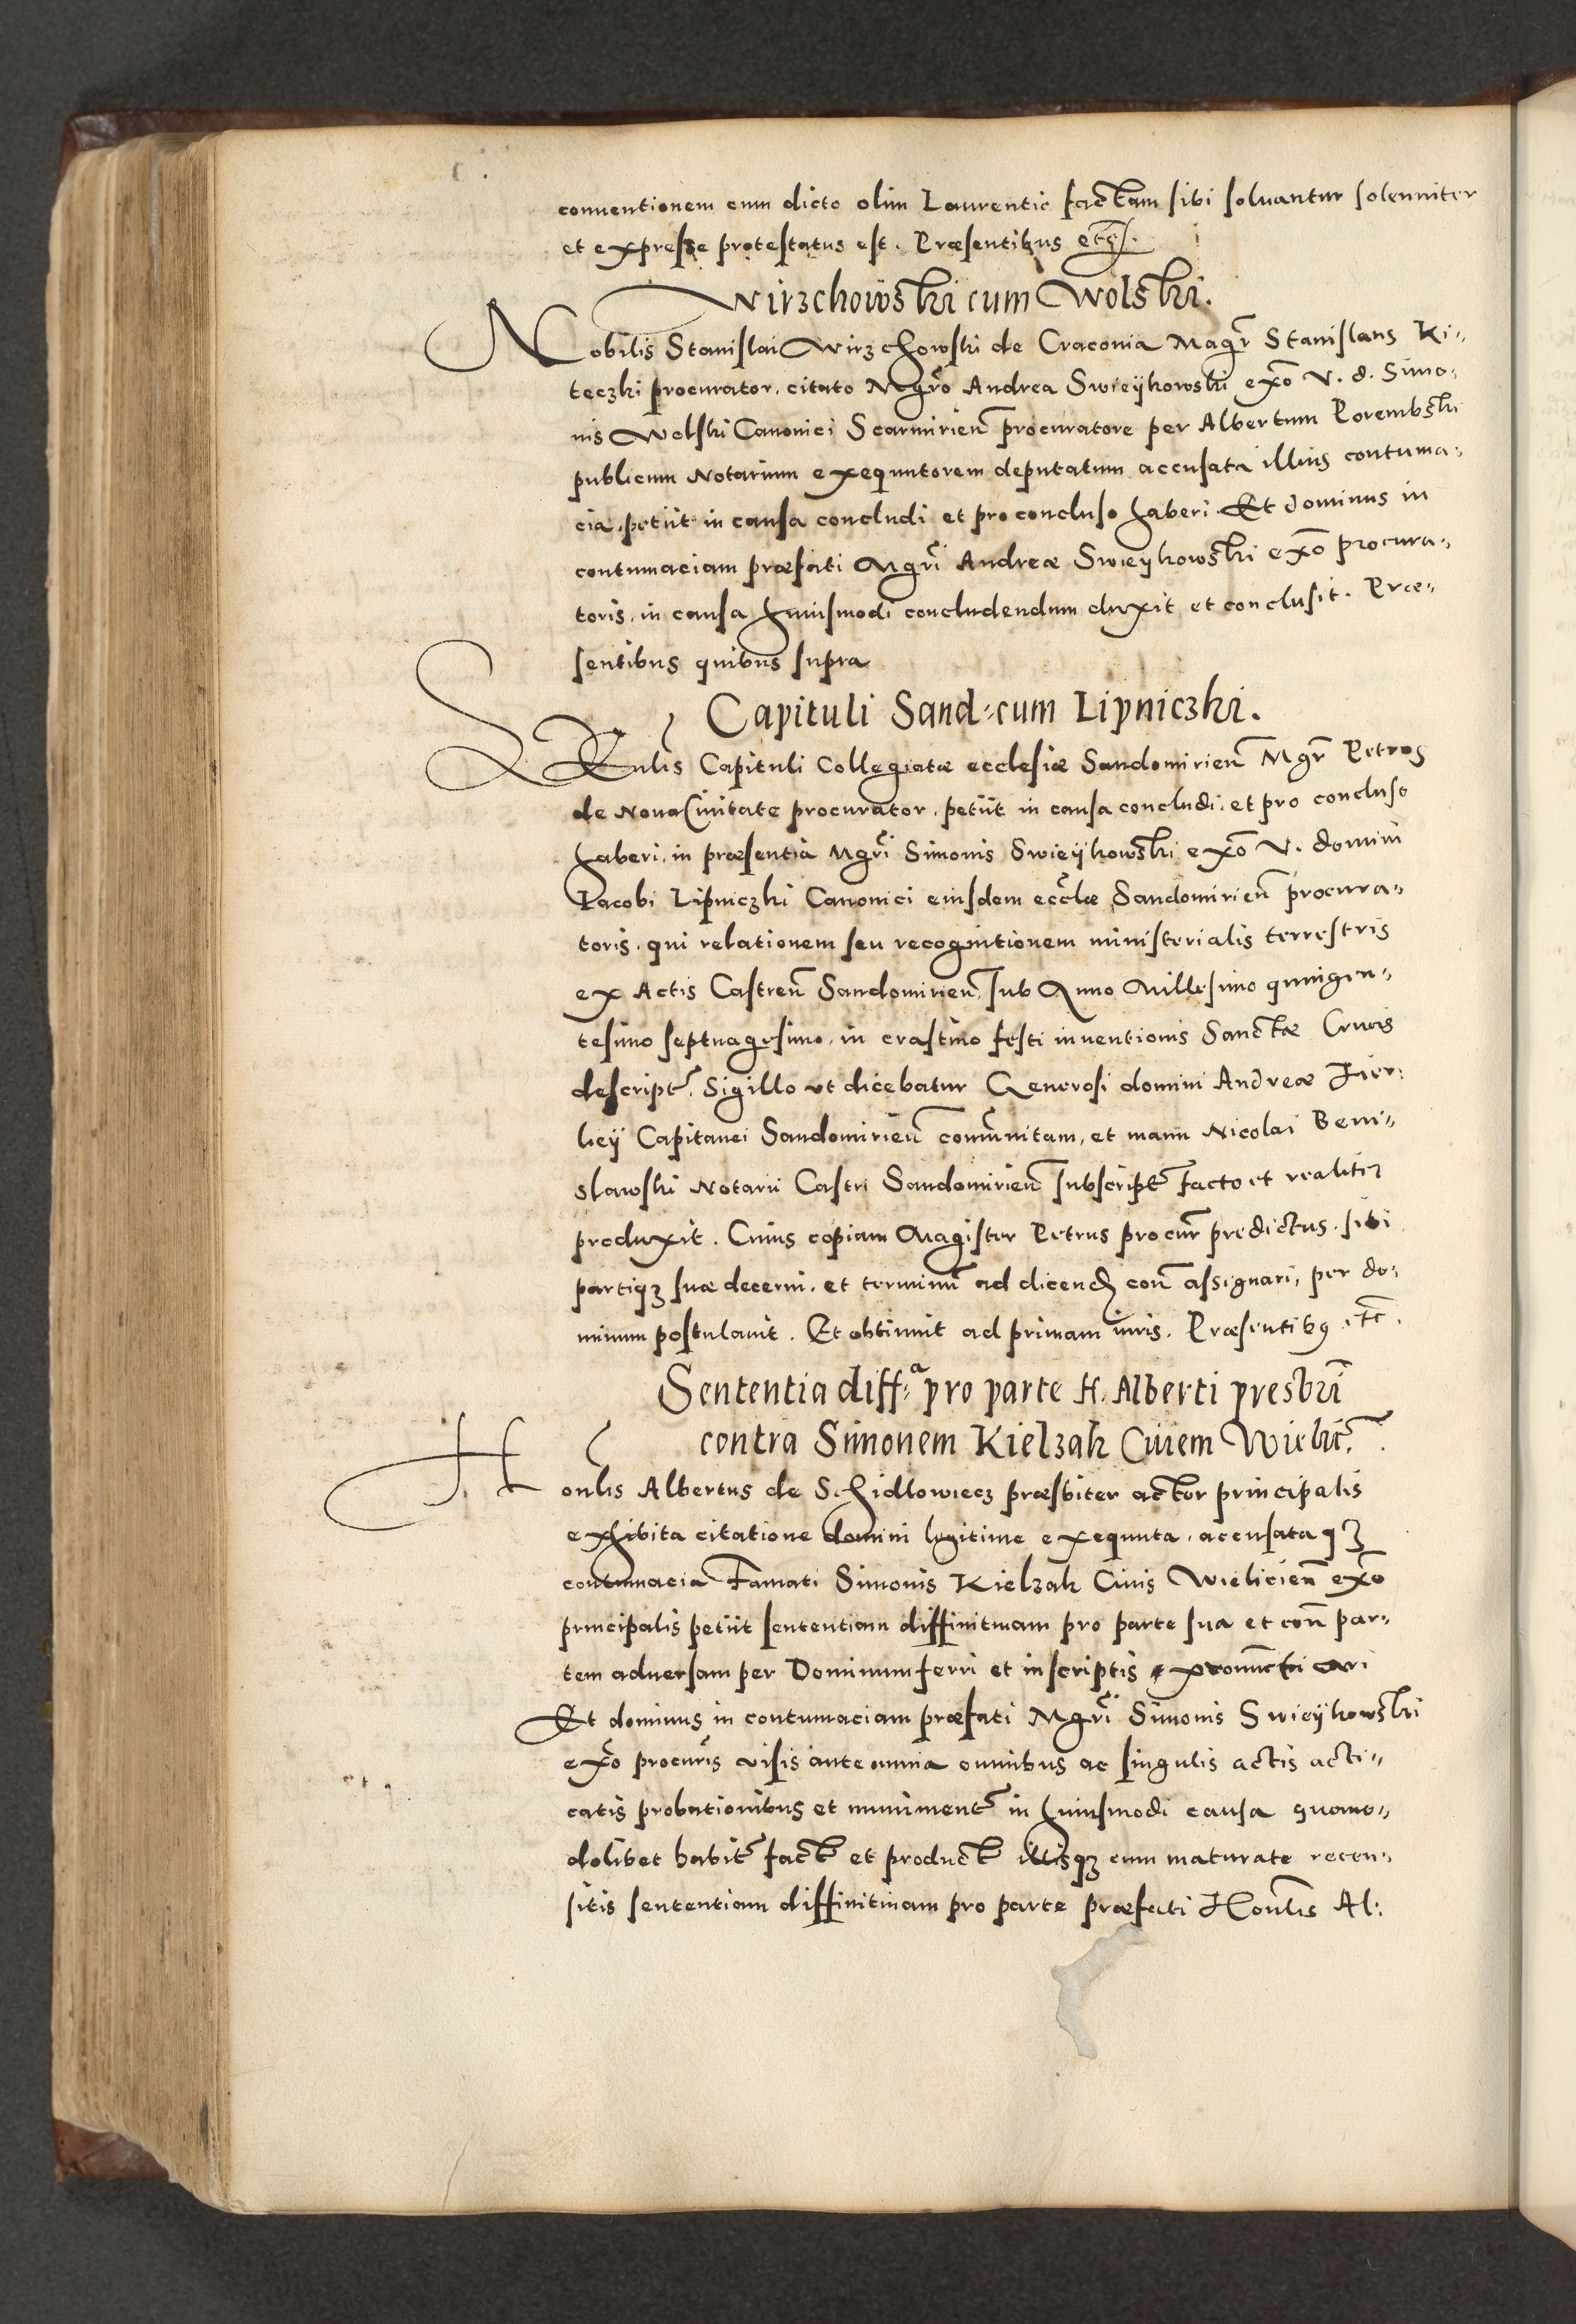 conuentionem cum dicto olim Laurentio factam sibi soluantur solenniter
et expresse protestatus est. Præsentibus etc.
Wirzchowski cum Wolski.
Nobilis Stanislai Wirzchowski de Craconia Magr̃ Stanislaus Ki„
teczki procurator, citato Mgrõ Andrea Swieÿkowski exõ V. d. Simo„
nis Wolski Canonici Scarmirien̄ procuratore per Albertum Porembski
publicum Notarium exequutorem deputatum accusata illius contuma„
cia, petiit in causa concludi et pro concluso haberi. Et dominus in
contumaciam præfati Mgrĩ Andreæ Swieÿkowski exõ procura„
toris, in causa huiusmodi concludendum duxit et conclusit. Præ„
sentibus quibus supra
Capituli Sand: cum Lipniczki.
Vn̄lis Capituli Collegiatæ ecclesiæ Sandomirien̄ Mgr̃ Petrus
de Noua Ciuitate procurator, petiit in causa concludi, et pro concluso
haberi, in præsentia Mgrĩ Simonis Swieÿkowski exõ V. domini
Iacobi Lipniczki Canonici eiusdem eccl̃æ Sandomirien̄ procura„
toris, qui relationem seu recognitionem ministerialis terrestris
ex Actis Castren̄ Sandomirien̄, sub Anno Millesimo quingen„
tesimo septuagesimo, in crastino festi inuentionis Sanctæ Crucis
descript̃. Sigillo vt dicebatur Generosi domini Andreæ Fier„
leÿ Capitanei Sandomirien̄ com̄unitam, et manu Nicolai Beni„
slawski Notarii Castri Sandomirien̄ subscript̃ facto et realiter
produxit. Cuius copiam Magister Petrus procur̃ predictus, sibi
partiqꝫ suæ decerni, et terminũ ad dicend̃ con̄ assignari, per do„
minum postulauit. Et obtinuit ad primam iuris. Præsentibꝰ etc̄.
Sententia diff:ᵃ pro parte H. Alberti presbrĩ
contra Simonem Kielzak Ciuem Wielic̃.
Hon̄lis Albertus de Schidlowiecz præsbiter actor principalis
exhibita citatione domini legitime exequuta, accusataqꝫ
contumacia Famati Simonis Kielzak Ciuis Wielicien̄ exõ
principalis petiit sententiam diffinitiuam pro parte sua et con̄ par„
tem aduersam per Dominum ferri et in scriptis pronuncti ari
Et dominus in contumaciam præfati Mgrĩ Simonis Swieÿkowski
exõ procur̃is visis ante omnia omnibus ac singulis actis acti„
catis probationibus et muniment̃ in huiusmodi causa quomo„
dolibet habit̃ fact̃ et product̃ illisqꝫ cum maturate recen„
sitis sententiam diffinitiuam pro parte præfati Hon̄lis Al: